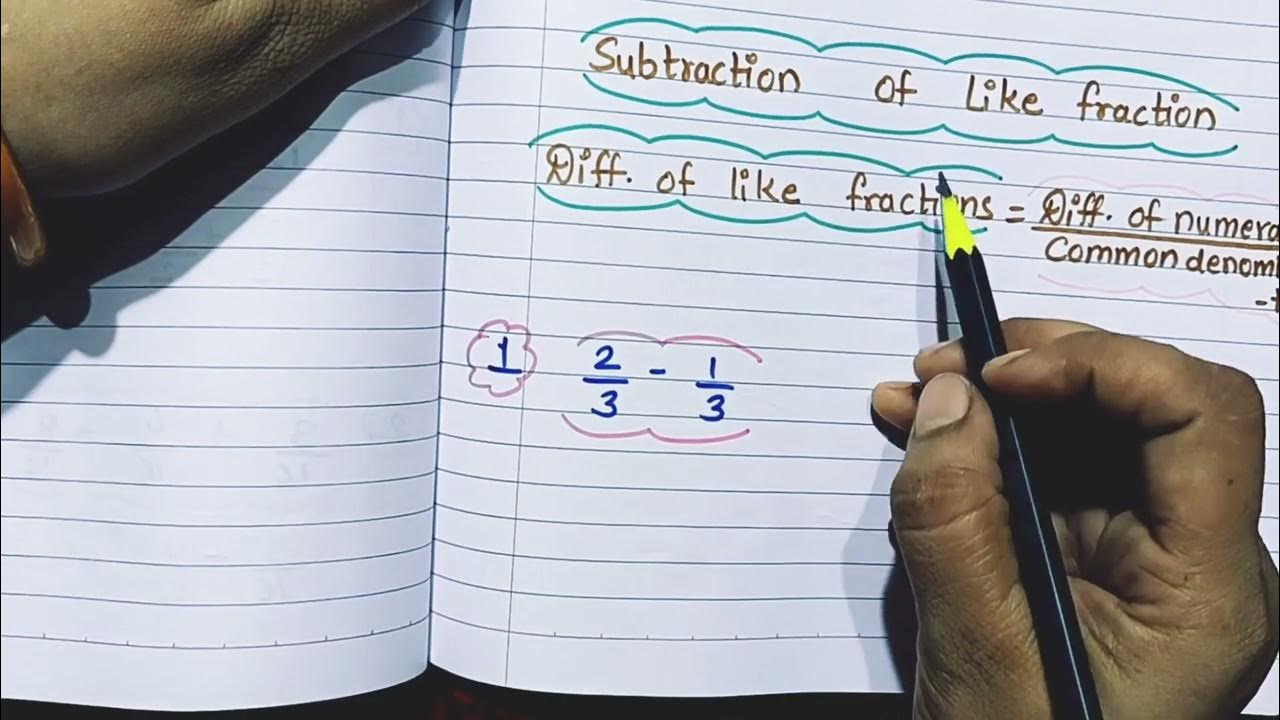 Subtraction of Like fraction
Diff. of like fractions = Diff. of numera
Common denomi
1 2/3 - 1/3